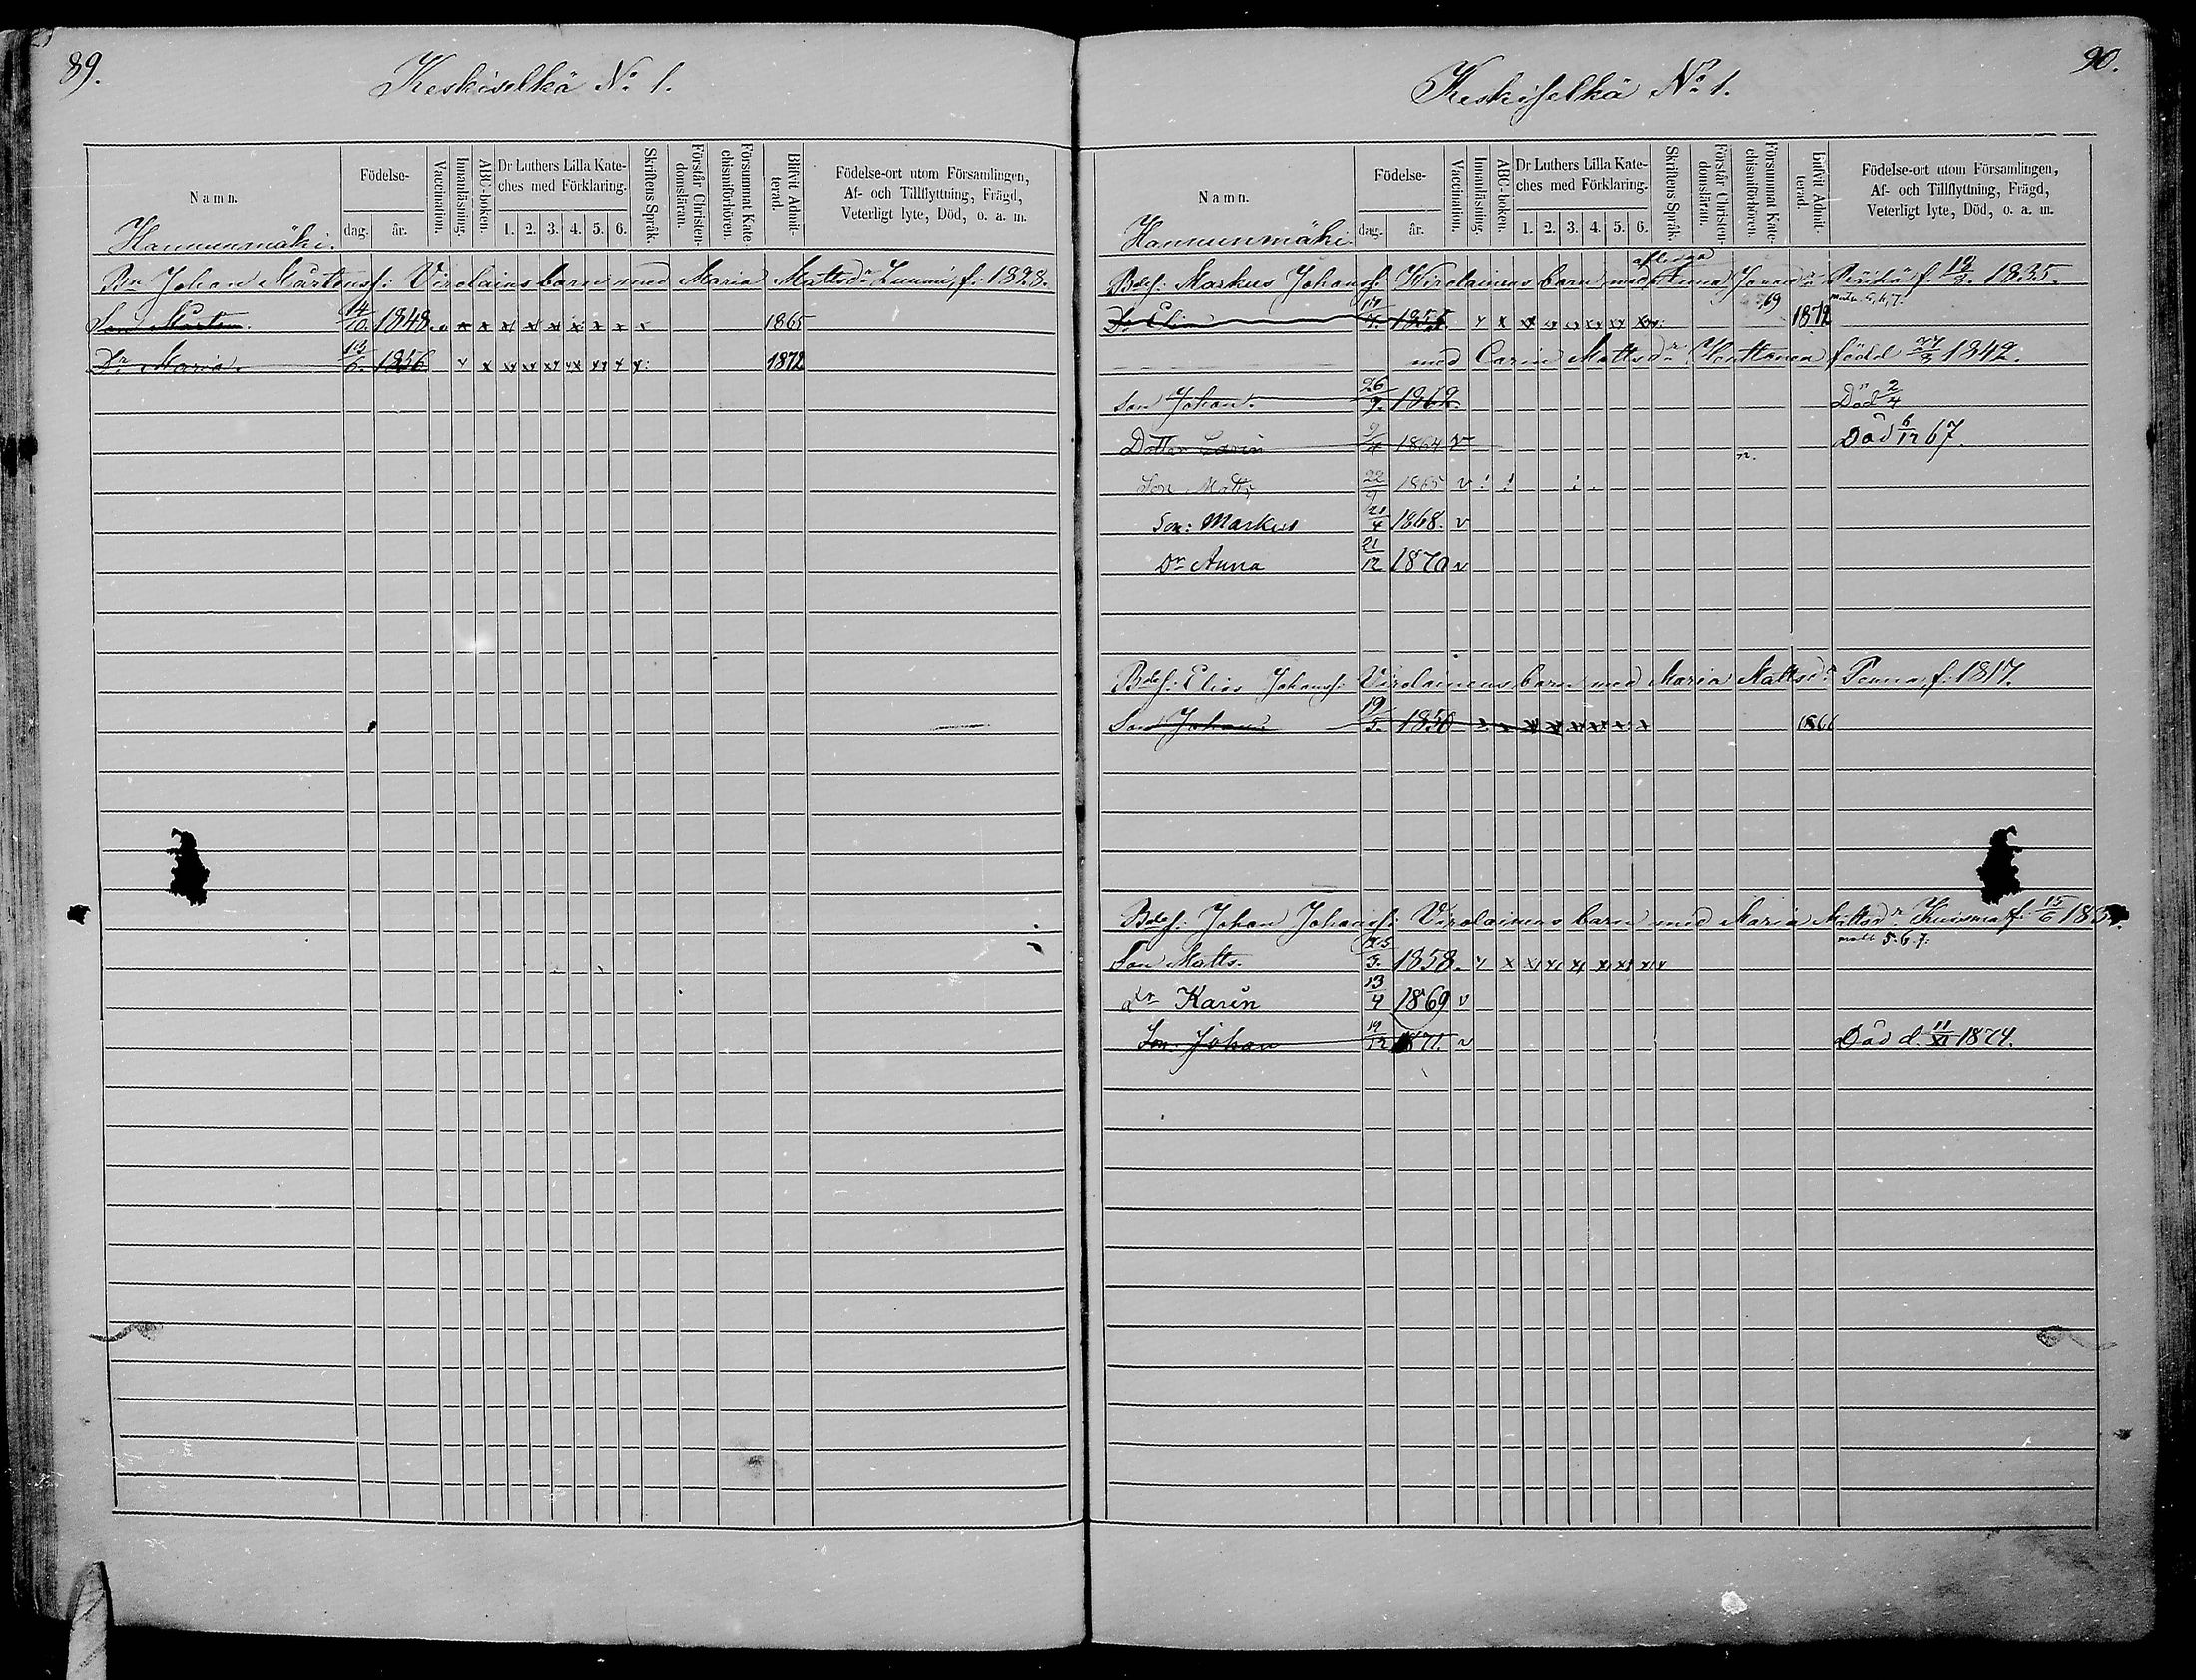 89.
Keskiselkä No. 1.
Namn.
Födelse-
dag. år.
Vaccination.
Innanläsning.
ABC-boken.
Dr Luthers Lilla Kate-
ches med Förklaring.
1. 2. 3. 4. 5. 6.
Skriftens Språk.
Förstår Christen-
domsläran.
Försummat Kate-
chismiförhören.
Blifvit Admit-
terad.
Födelse-ort utom Församlingen,
Af- och Tillflyttning, Frägd,
Veterligt lyte, Död, o. a. m.
Hannunmäki.
Bn Johan Mårtensf: Virolainsbarn med Maria Mattsdr f: 1828.
Son Mårten. 14/10 1848 x x x x x x x x 1865
Dr Maria. 13/6 1856 x x x x x x x x 1872
90.
Keskiselkä No 1.
Namn.
Födelse-
dag. år.
Vaccination.
Innanläsning.
ABC-boken.
Dr Luthers Lilla Kate-
ches med Förklaring.
1. 2. 3. 4. 5. 6.
Skriftens Språk.
Förstår Christen-
domsläran.
Försummat Kate-
chismiförhören.
Blifvit Admit-
terad.
Födelse-ort utom Församlingen,
Af- och Tillflyttning, Frägd,
Veterligt lyte, Död, o. a. m.
Hannunmäki
aflidna
Bdef: Markus Johansf: Wirolainens barn med Anna f. 1835.
Dr Elin 69 1872
med Carin Mattsdr född 1842.
Son Johan. 26/9. 1862. Död 2/4
Dotter Carin 9/4 1864 v Död 6/12 67.
Son Matts 22/9 1865 v
Son: Markus 21/4 1868. v
Dr Anna 21/12 1870 v
Bdef: Elias Johansf: Virolainens barn med Maria Mattsdr f: 1817.
Son Johan 19/5. 1850 x x x x x x x x 1866
Bdef: Johan Johansf: Virolainens barn med Maria Mattsdr f: 15/6
5. 6. 7.
Son Matts. 1858. x x x x x x x x
dr Karin 13/4 1869 v
Son Johan 19/12 1871. v Död d. 11/XI 1874.